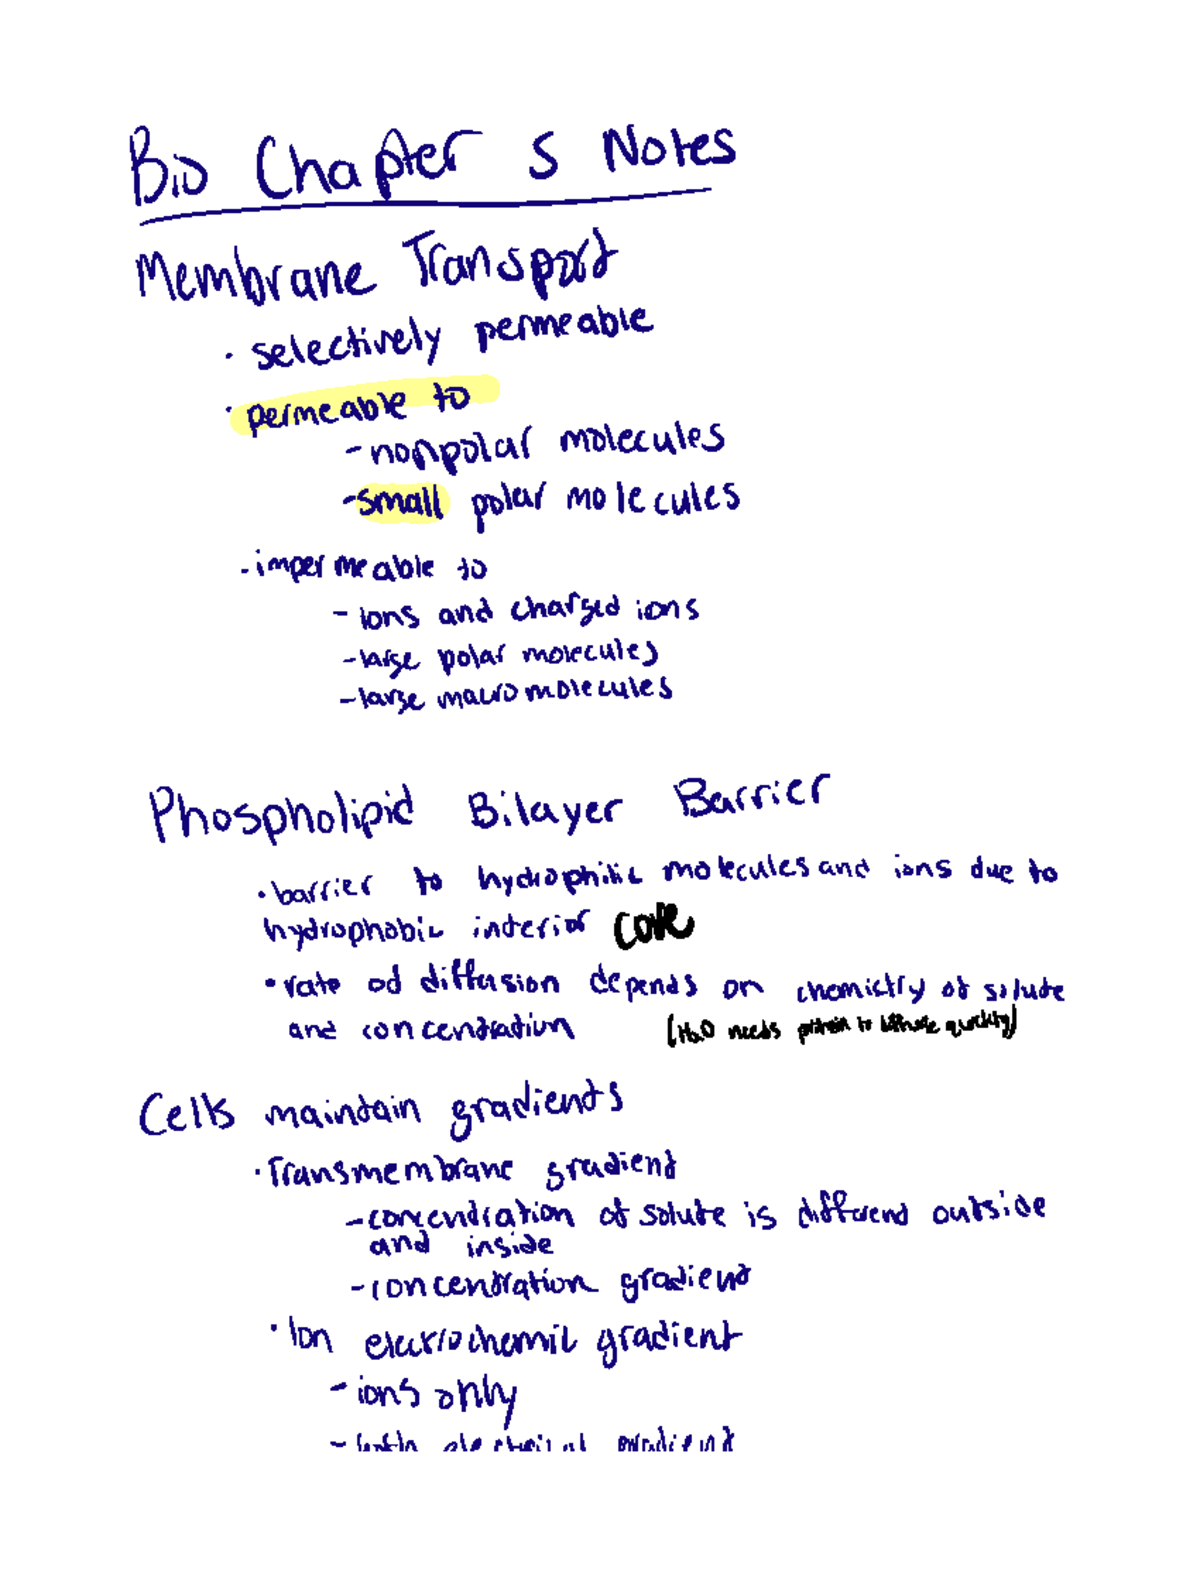 Bio Chapter 5 Notes
Membrane Transport
· selectively permeable
· permeable to
- nonpolar molecules
- small polar molecules
· impermeable to
- ions and charged ions
- large polar molecules
- large macromolecules
Phospholipid Bilayer Barrier
· barrier to hydrophilic molecules and ions due to
hydrophobic interior core
· rate od diffusion depends on chemistry of solute
and concentration (H2O needs protein to diffuse quickly)
Cells maintain gradients
· Transmembrane gradient
- concentration of solute is different outside
and inside
- concentration gradient
· Ion electrochemic gradient
- ions only
- both electrical gradient